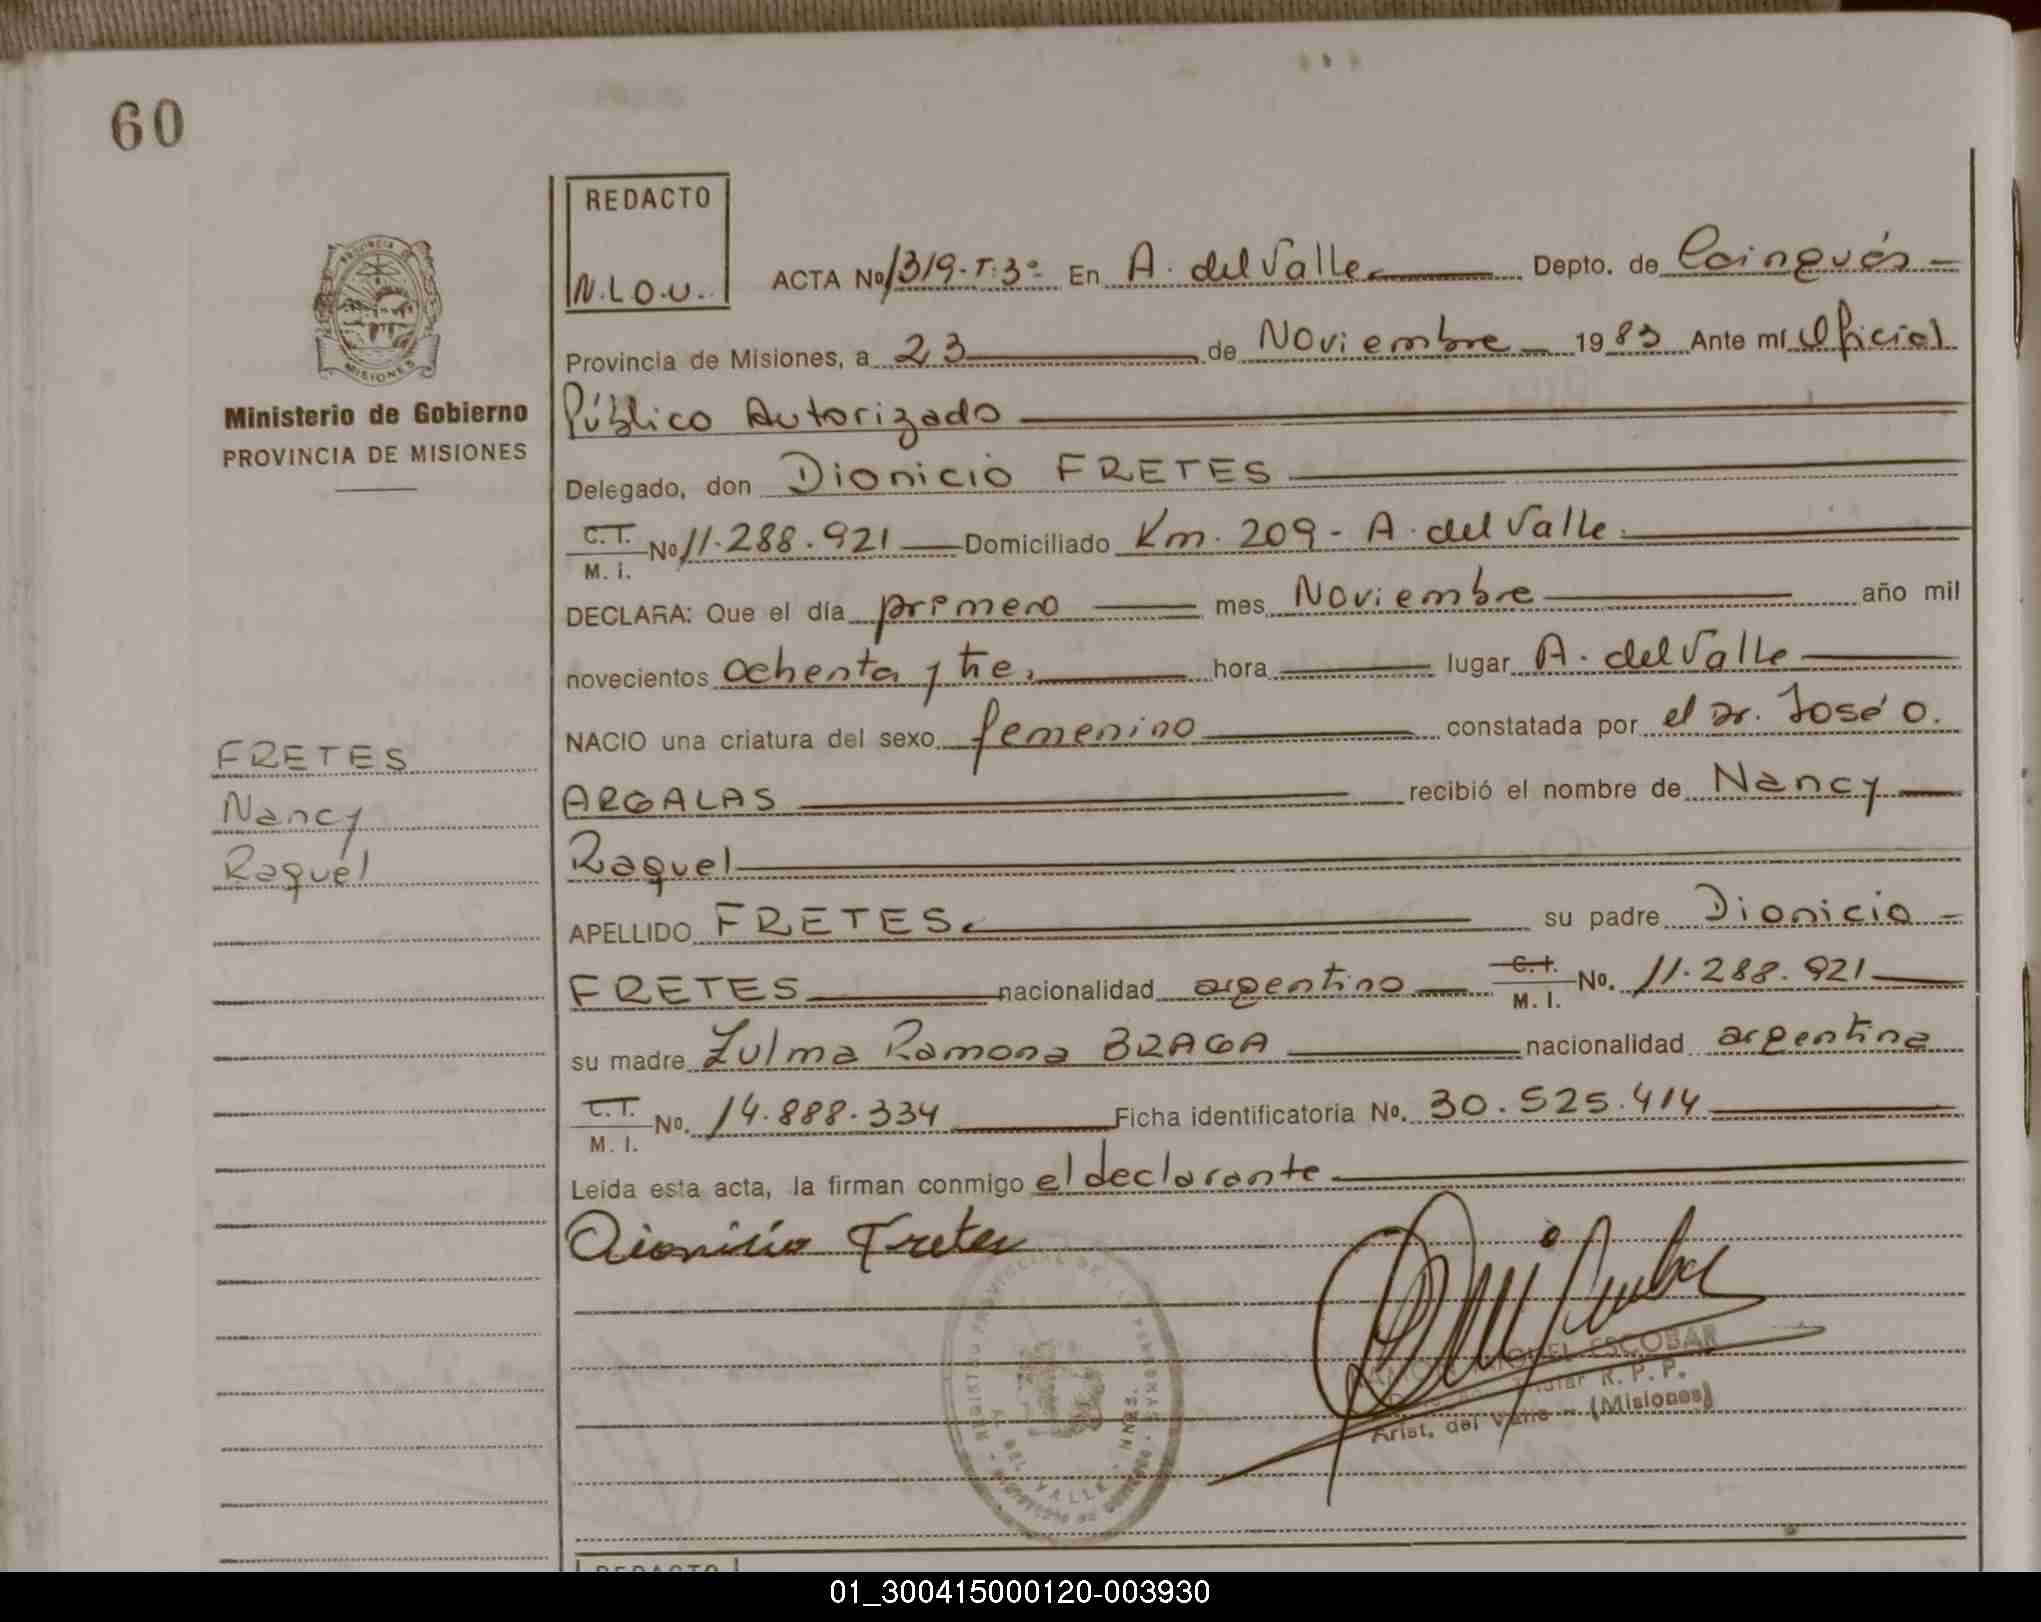 60
REDACTO
N.L.O.U.
PROVINCIA DE
MISIONES
Ministerio de Gobierno
PROVINCIA DE MISIONES
ACTA No 1319-T:3º- En A. del Valle Depto. de Cainguás
Provincia de Misiones, a 23 de Noviembre 1983 Ante mí Oficial
Público Autorizado
Delegado, don Dionicio FRETES
C.I. M. I. No 11.288.921 Domiciliado Km. 209 - A. del Valle
DECLARA: Que el día primero mes Noviembre año mil
novecientos ochenta y tres hora lugar A. del Valle
NACIO una criatura del sexo femenino constatada por el Dr. José O.
ARGALAS recibió el nombre de Nancy
Raquel
APELLIDO FRETES su padre Dionicio
FRETES nacionalidad argentino C.I. M. I. No. 11.288.921
su madre Zulma Ramona BRAGA nacionalidad argentina
C.I. M. I. No. 14.888.334 Ficha identificatoria No. 30.525.414
Leída esta acta, la firman conmigo el declarante
Dionicio Fretes
FRETES
Nancy
Raquel
ESCOBAR
Titular R. P. P.
Arist. del Valle - (Misiones)
REGISTRO PROVINCIAL DE
A. DEL VALLE - MNES.
REDACTO
01_300415000120-003930